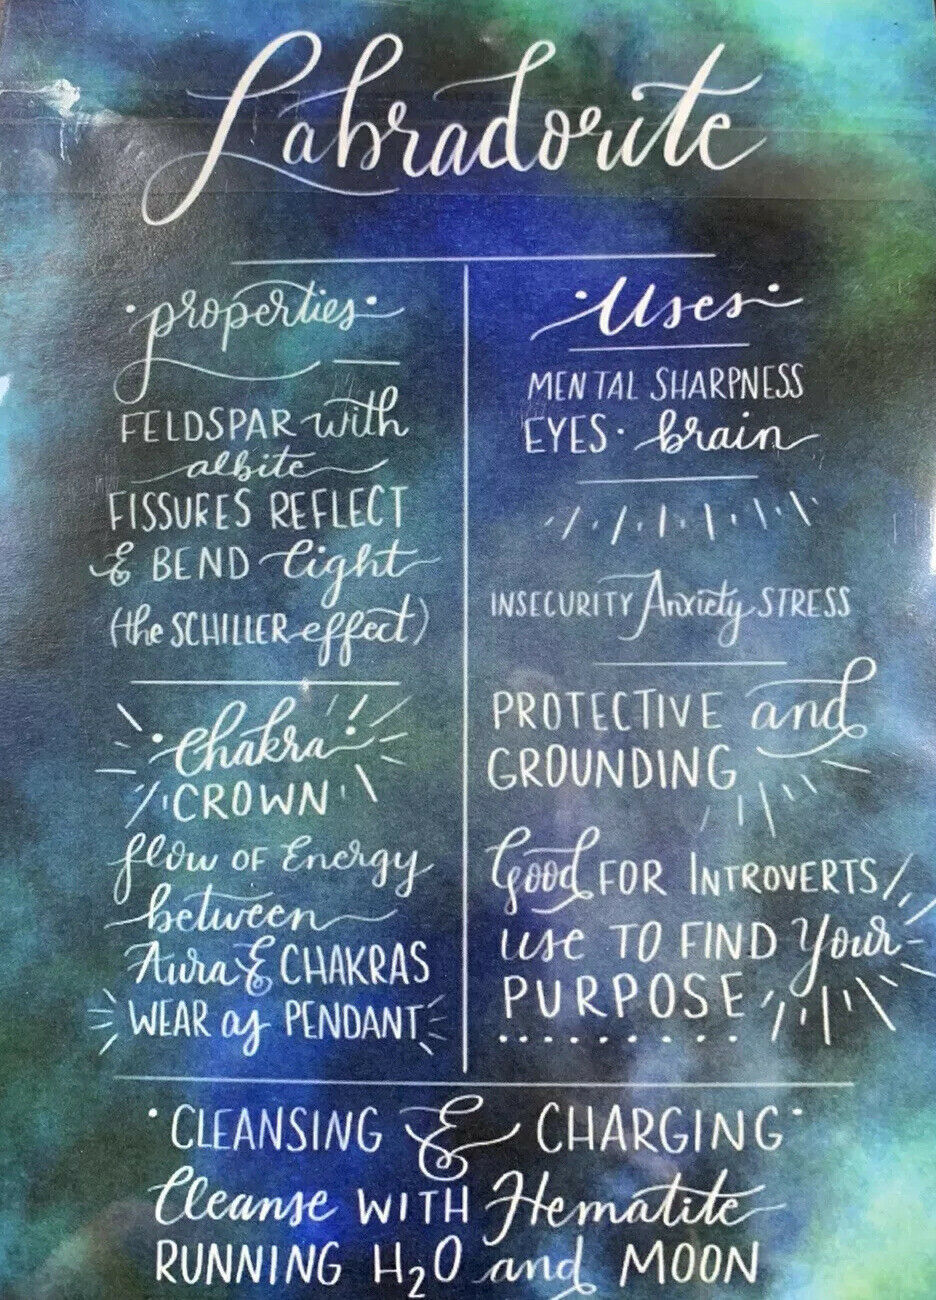 Labradorite
·properties·
FELDSPAR with
albite
FISSURES REFLECT
& BEND light
(the SCHILLER effect)
·Chakra·
CROWN
flow OF Energy
between
Aura & CHAKRAS
WEAR as PENDANT
·Uses·
MENTAL SHARPNESS
EYES · brain
INSECURITY Anxiety STRESS
PROTECTIVE and
GROUNDING
Good FOR INTROVERTS
use TO FIND Your
PURPOSE
·CLEANSING & CHARGING·
Cleanse WITH Hematite
RUNNING H₂O and MOON